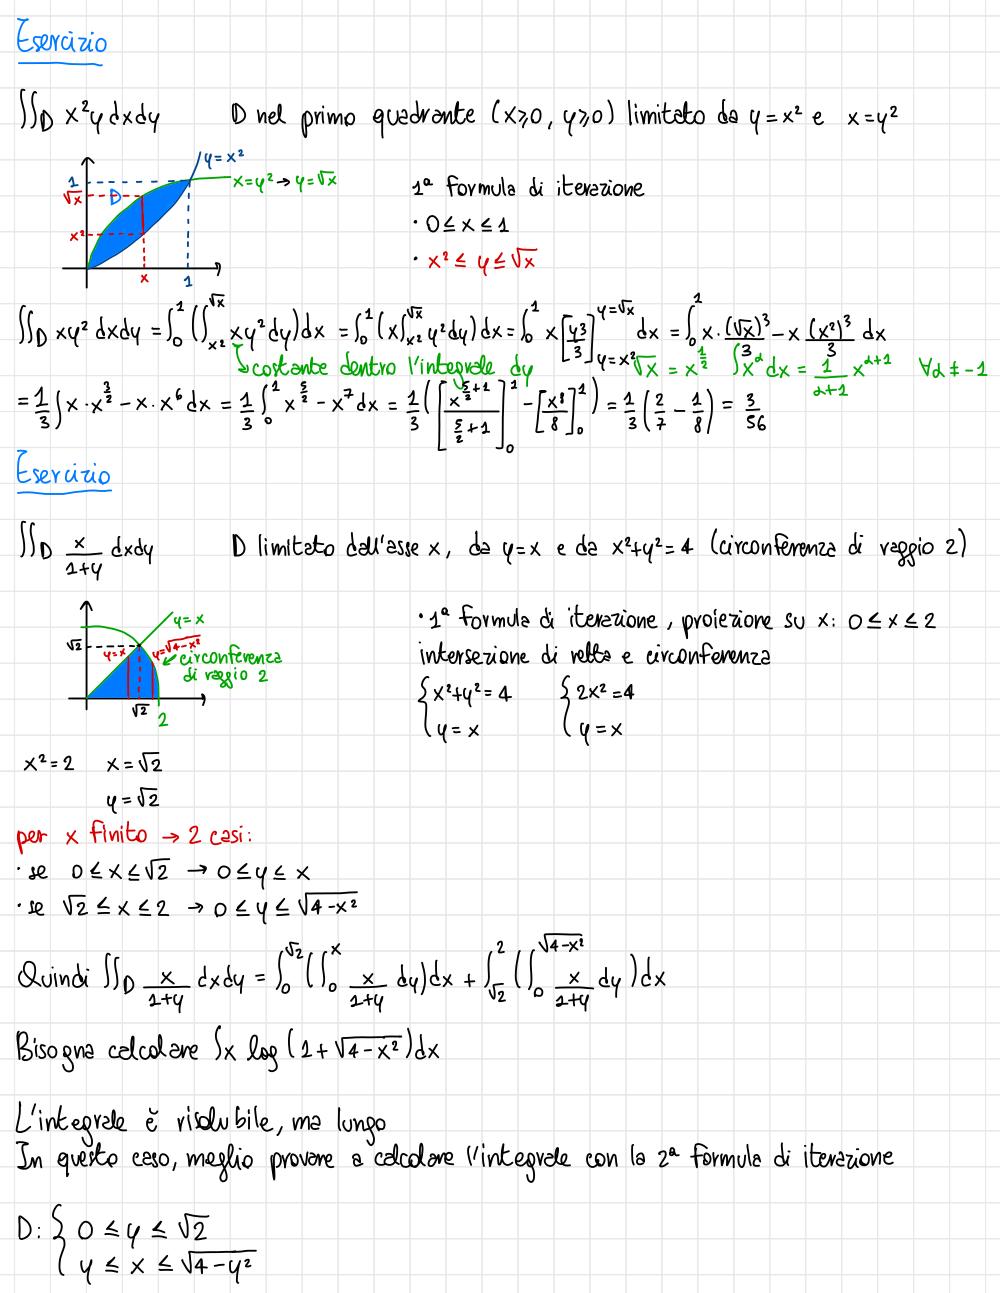 Esercizio
∬_D x²y dxdy D nel primo quadrante (x≥0, y≥0) limitato da y=x² e x=y²
y=x²
1
x=y² → y=√x
√x
D
x²
x
1
1ª formula di iterazione
· 0≤x≤1
· x² ≤ y ≤ √x
∬_D xy² dxdy = ∫_0^1 (∫_{x²}^{√x} xy² dy)dx = ∫_0^1 (x∫_{x²}^{√x} y² dy)dx = ∫_0^1 x[y³/3]_{y=x²}^{y=√x} dx = ∫_0^1 x·(√x)³/3 - x (x²)³/3 dx
↳ costante dentro l'integrale dy √x = x^{1/2} ∫x^α dx = 1/(α+1) x^{α+1} ∀α ≠ -1
= 1/3 ∫ x·x^{3/2} - x·x⁶ dx = 1/3 ∫_0^1 x^{5/2} - x⁷ dx = 1/3 ([x^{5/2+1}/(5/2+1)]_0^1 - [x⁸/8]_0^1) = 1/3 (2/7 - 1/8) = 3/56
Esercizio
∬_D x/(1+y) dxdy D limitato dall'asse x, da y=x e da x²+y²=4 (circonferenza di raggio 2)
y=x
√2
y=x
y=√(4-x²)
circonferenza
di raggio 2
√2
2
· 1ª formula di iterazione, proiezione su x: 0≤x≤2
intersezione di retta e circonferenza
{x²+y²=4 {2x²=4
{y=x {y=x
x²=2 x=√2
y=√2
per x finito → 2 casi:
· se 0≤x≤√2 → 0≤y≤x
· se √2≤x≤2 → 0≤y≤√(4-x²)
Quindi ∬_D x/(1+y) dxdy = ∫_0^{√2} (∫_0^x x/(1+y) dy)dx + ∫_{√2}^2 (∫_0^{√(4-x²)} x/(1+y) dy)dx
Bisogna calcolare ∫x log(1+√(4-x²))dx
L'integrale è risolubile, ma lungo
In questo caso, meglio provare a calcolare l'integrale con la 2ª formula di iterazione
D: { 0≤y≤√2
{ y≤x≤√(4-y²)